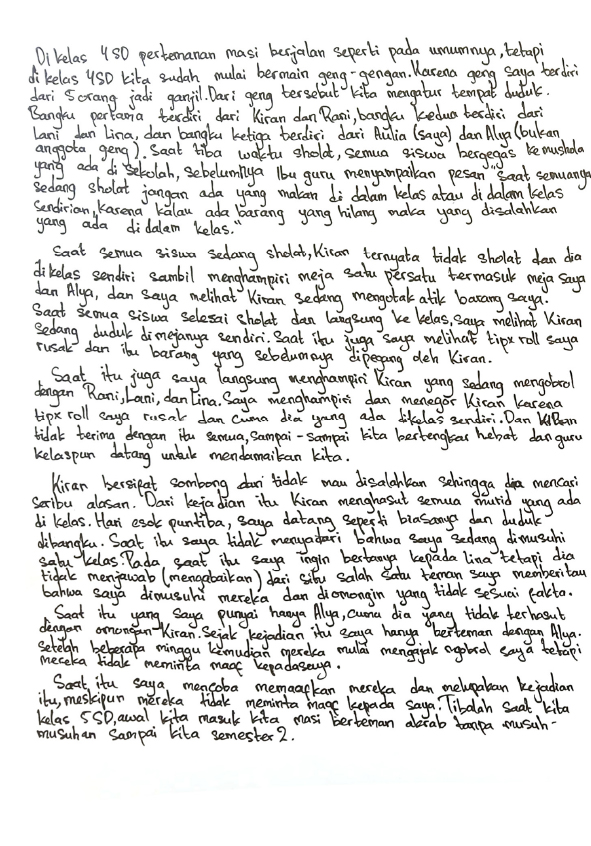 Di kelas 4 SD pertemanan masi berjalan seperti pada umumnya, tetapi
di kelas 4SD kita sudah mulai bermain geng-gengan. Karena geng saya terdiri
dari 5 orang jadi ganjil. Dari geng tersebut kita mengatur tempat duduk.
Bangku pertama terdiri dari Kiran dan Rani, bangku kedua terdiri dari
Lani dan Lina, dan bangku ketiga terdiri dari Aulia (saya) dan Alya (bukan
anggota geng). Saat tiba waktu sholat, semua siswa bergegas ke mushola
yang ada di sekolah, sebelumnya Ibu guru menyampaikan pesan "Saat semuanya
sedang sholat jangan ada yang makan di dalam kelas atau di dalam kelas
sendirian, karena kalau ada barang yang hilang maka yang disalahkan
yang ada di dalam kelas."
Saat semua siswa sedang sholat, Kiran ternyata tidak sholat dan dia
di kelas sendiri sambil menghampiri meja satu persatu termasuk meja saya
dan Alya, dan saya melihat Kiran sedang mengotak atik barang saya.
Saat semua siswa selesai sholat dan langsung ke kelas, saya melihat Kiran
sedang duduk dimejanya sendiri. Saat itu juga saya melihat tipx roll saya
rusak dan itu barang yang sebelumnya dipegang oleh Kiran.
Saat itu juga saya langsung menghampiri Kiran yang sedang mengobrol
dengan Rani, Lani, dan Lina. Saya menghampiri dan menegor Kiran karena
tipx roll saya rusak dan cuma dia yang ada dikelas sendiri. Dan Kiran
tidak terima dengan itu semua, sampai-sampai kita bertengkar hebat dan guru
kelaspun datang untuk mendamaikan kita.
Kiran bersifat sombong dan tidak mau disalahkan sehingga dia mencari
seribu alasan. Dari kejadian itu Kiran menghasut semua murid yang ada
di kelas. Hari esok puntiba, saya datang seperti biasanya dan duduk
dibangku. Saat itu saya tidak menyadari bahwa saya sedang dimusuhi
satu kelas. Pada saat itu saya ingin bertanya kepada lina tetapi dia
tidak menjawab (mengabaikan) dari situ salah satu teman saya memberitau
bahwa saya dimusuhi mereka dan diomongin yang tidak sesuai fakta.
Saat itu yang saya punyai hanya Alya, cuma dia yang tidak terhasut
dengan omongan Kiran. Sejak kejadian itu saya hanya berteman dengan Alya.
setelah beberapa minggu kemudian mereka mulai mengajak ngobrol saya tetapi
mereka tidak meminta maaf kepadasaya.
Saat itu saya mencoba memaafkan mereka dan melupakan kejadian
itu, meskipun mereka tidak meminta maaf kepada saya. Tibalah saat kita
kelas 5SD, awal kita masuk kita masi berteman akrab tanpa musuh-
musuhan sampai kita semester 2.